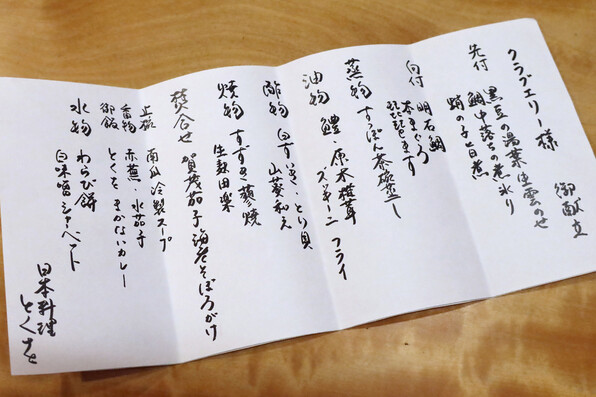 クラブエリー様
御献立
先付 黒豆の湯葉 生雲のせ
鯛中落ちの煮氷り
蛸の子旨煮
向付 明石鯛
本まぐろ
蒸物 すっぽん茶碗蒸し
油物 鱧・原木椎茸
ズッキーニ フライ
酢物 白ずいき、とり貝
山葵和え
焼物 すずき蓼焼
生麩田楽
焚合せ 賀茂茄子海老そぼろがけ
止椀 南瓜冷製スープ
香物 赤蕪・水茄子
御飯 とくを まかないカレー
水物 わらび餅
白味噌シャーベット
日本料理
とくを